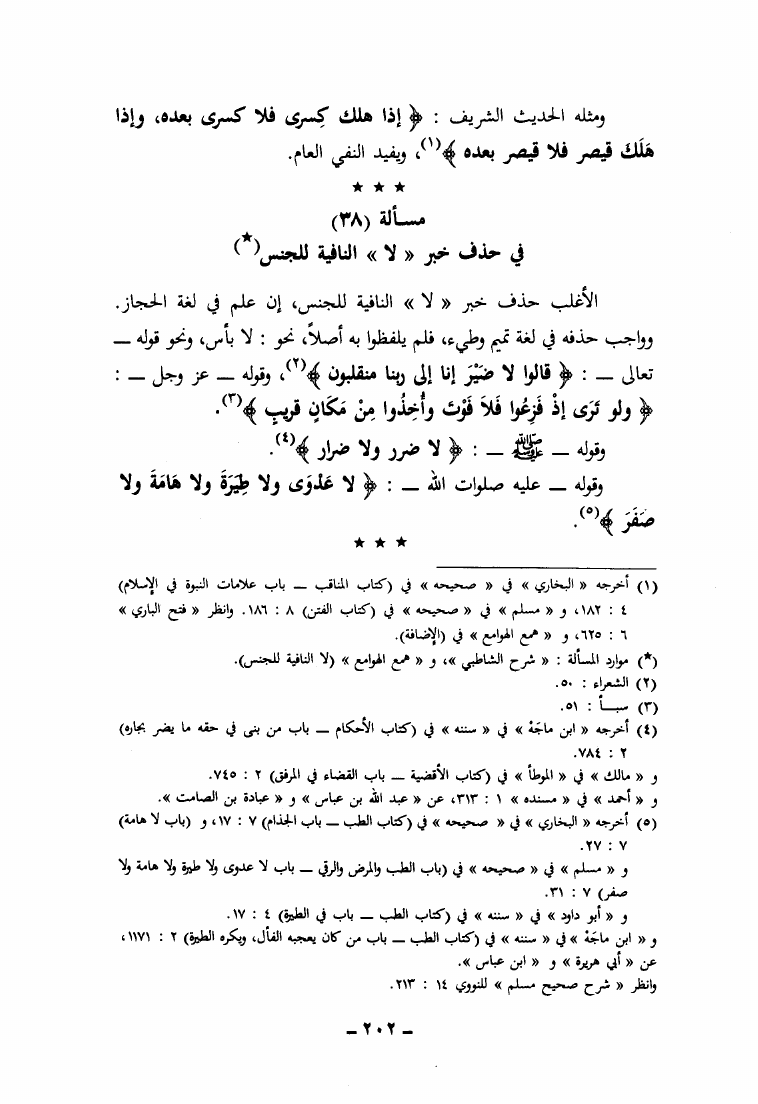 ومثله الحديث الشريف : ﴿ إذا هلك كِسرى فلا كسرى بعده، وإذا
هَلَكَ قيصر فلا قيصر بعده ﴾(١)، ويفيد النفي العام.
★ ★ ★
مسألة (٣٨)
في حذف خبر « لا » النافية للجنس(★)
الأغلب حذف خبر « لا » النافية للجنس، إن علم في لغة الحجاز.
وواجب حذفه في لغة تميم وطيء، فلم يلفظوا به أصلاً، نحو : لا بأس، ونحو قوله ــ
تعالى ــ : ﴿ قالوا لا ضَيْرَ إنا إلى ربنا منقلبون ﴾(٢)، وقوله ــ عز وجل ــ :
﴿ ولو تَرَى إذْ فَزِعُوا فَلاَ فَوْتَ وأُخِذُوا مِنْ مَكَانٍ قريبٍ ﴾(٣).
وقوله ــ ﷺ ــ : ﴿ لا ضرر ولا ضرار ﴾(٤).
وقوله ــ عليه صلوات الله ــ : ﴿ لا عَدْوَى ولا طِيَرَةَ ولا هَامَةَ ولا
صَفَرَ ﴾(٥).
★ ★ ★
(١) أخرجه « البخاري » في « صحيحه » في (كتاب المناقب ــ باب علامات النبوة في الإسلام)
٤ : ١٨٢، و « مسلم » في « صحيحه » في (كتاب الفتن) ٨ : ١٨٦. وانظر « فتح الباري »
٦ : ٦٢٥، و « همع الهوامع » في (الإضافة).
(★) موارد المسألة : « شرح الشاطبي »، و « همع الهوامع » (لا النافية للجنس).
(٢) الشعراء : ٥٠.
(٣) سبـأ : ٥١.
(٤) أخرجه « ابن ماجَهْ » في « سننه » في (كتاب الأحكام ــ باب من بنى في حقه ما يضر بجاره)
٢ : ٧٨٤.
و « مالك » في « الموطأ » في (كتاب الأقضية ــ باب القضاء في المرفق) ٢ : ٧٤٥.
و « أحمد » في « مسنده » ١ : ٣١٣، عن « عبد الله بن عباس » و « عبادة بن الصامت ».
(٥) أخرجه « البخاري » في « صحيحه » في (كتاب الطب ــ باب الجذام) ٧ : ١٧، و (باب لا هامة)
٧ : ٢٧.
و « مسلم » في « صحيحه » في (باب الطب والمرض والرقي ــ باب لا عدوى ولا طيرة ولا هامة ولا
صفر) ٧ : ٣١.
و « أبو داود » في « سننه » في (كتاب الطب ــ باب في الطيرة) ٤ : ١٧.
و « ابن ماجَهْ » في « سننه » في (كتاب الطب ــ باب من كان يعجبه الفأل، ويكره الطيرة) ٢ : ١١٧١،
عن « أبي هريرة » و « ابن عباس ».
وانظر « شرح صحيح مسلم » للنووي ١٤ : ٢١٣.
ــ ٢٠٢ ــ